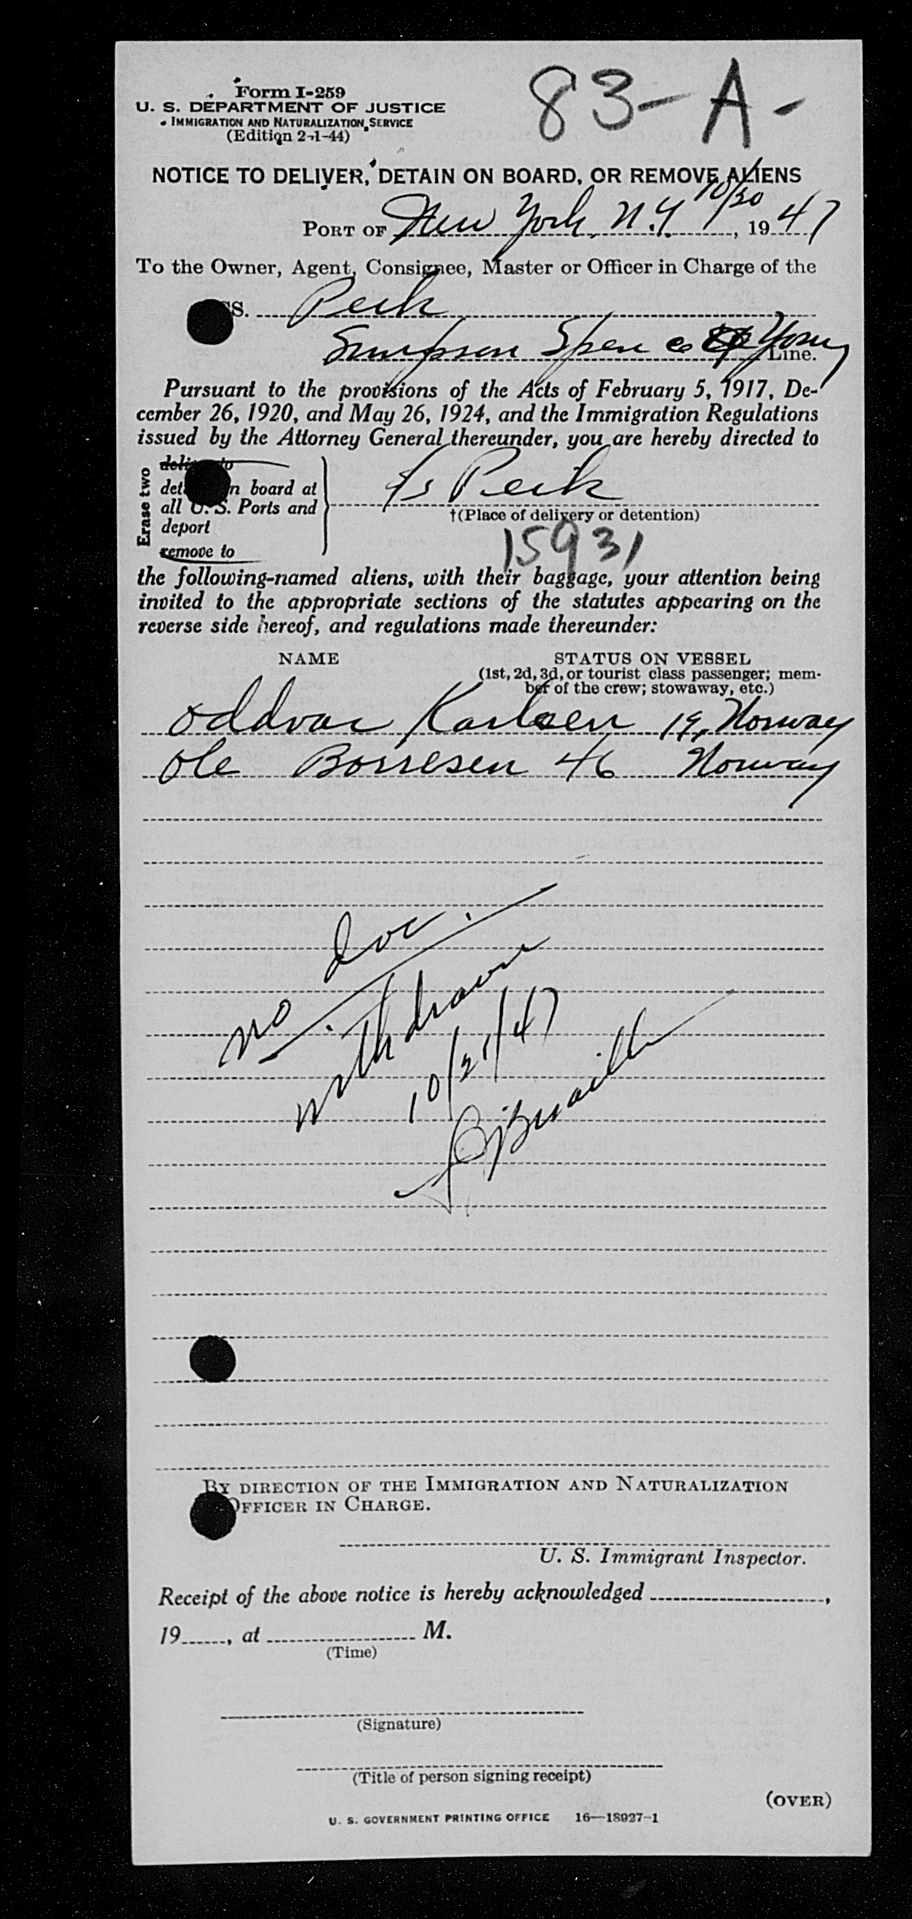 Form I-259
83-A-
U. S. DEPARTMENT OF JUSTICE
IMMIGRATION AND NATURALIZATION SERVICE
(Edition 2-1-44)
NOTICE TO DELIVER, DETAIN ON BOARD, OR REMOVE ALIENS
PORT OF New York, N.Y. 10/20, 1947
To the Owner, Agent, Consignee, Master or Officer in Charge of the
SS. Peik
Simpson Spence & Young Line.
Pursuant to the provisions of the Acts of February 5, 1917, De-
cember 26, 1920, and May 26, 1924, and the Immigration Regulations
issued by the Attorney General thereunder, you are hereby directed to
Erase two
deliver to
detain on board at
all U. S. Ports and
deport
remove to
S/S Peik
†(Place of delivery or detention)
15931
the following-named aliens, with their baggage, your attention being
invited to the appropriate sections of the statutes appearing on the
reverse side hereof, and regulations made thereunder:
NAME STATUS ON VESSEL
(1st, 2d, 3d, or tourist class passenger; mem-
ber of the crew; stowaway, etc.)
Oddvar Karlsen 19, Norway
Ole Borresen 46 Norway
no doc.
withdrawn
10/21/47
BY DIRECTION OF THE IMMIGRATION AND NATURALIZATION
OFFICER IN CHARGE.
U. S. Immigrant Inspector.
Receipt of the above notice is hereby acknowledged ,
19 , at M.
(Time)
(Signature)
(Title of person signing receipt)
(OVER)
U. S. GOVERNMENT PRINTING OFFICE 16—18927-1